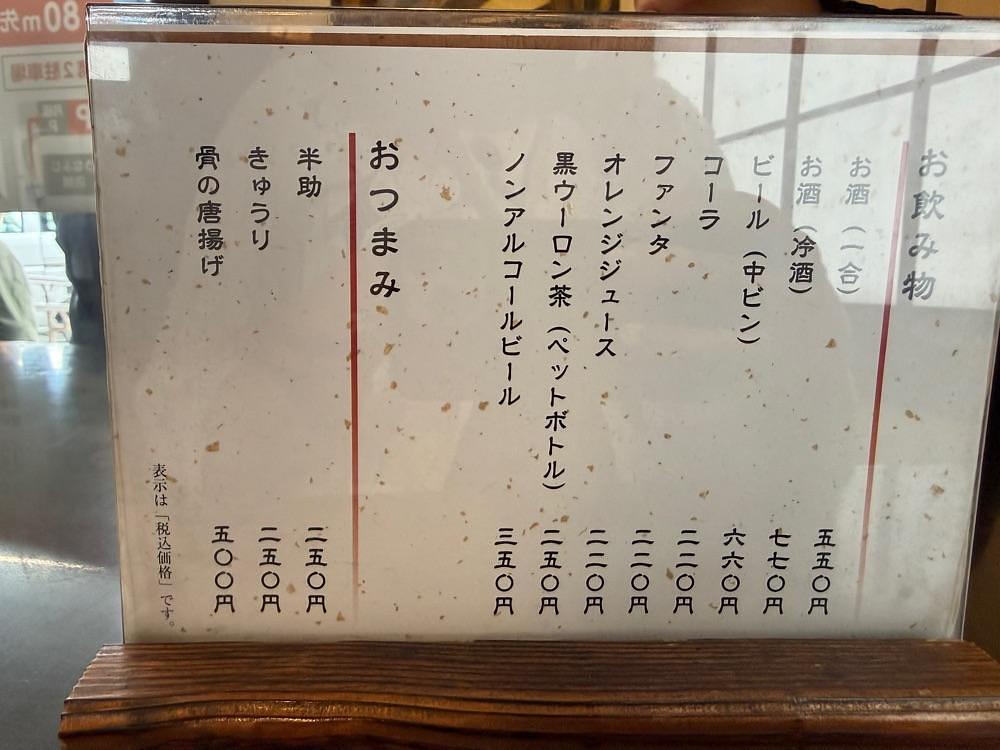 お飲み物
お酒（一合） 五五〇円
お酒（冷酒） 七七〇円
ビール（中ビン） 六六〇円
コーラ 二二〇円
ファンタ 二二〇円
オレンジジュース 二二〇円
黒ウーロン茶（ペットボトル） 二五〇円
ノンアルコールビール 三五〇円
おつまみ
半助 二五〇円
きゅうり 二五〇円
骨の唐揚げ 五〇〇円
表示は「税込価格」です。
80m先
第2駐車場